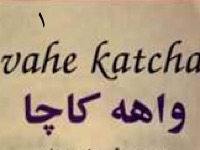 ۱
vahe katcha
واهه کاچا